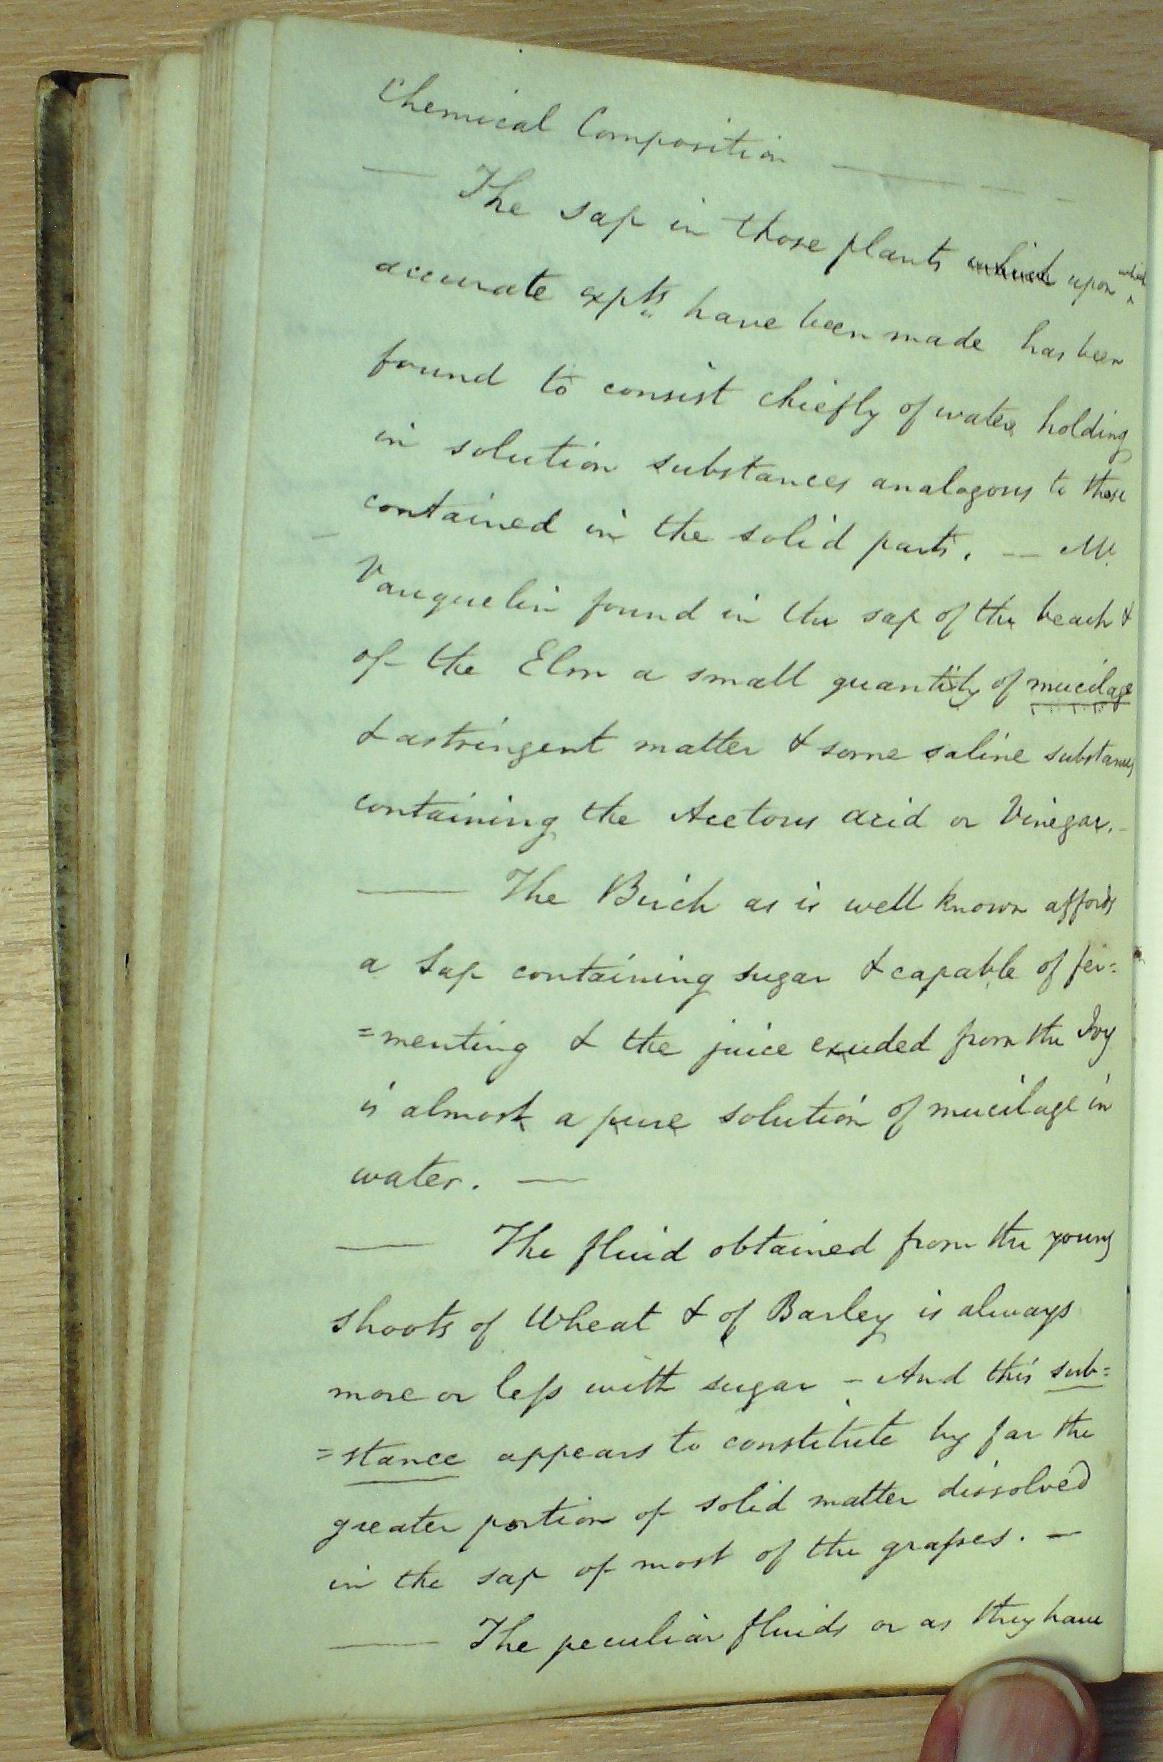 Chemical Composition —
— The sap in those plants which upon which
accurate expts have been made has been
found to consist chiefly of water holding
in solution substances analogous to those
contained in the solid parts. — Mr.
Vauquelin found in the sap of the beach &
of the Elm a small quantity of mucilage
& astringent matter & some saline substances
containing the Acetous acid or Vinegar. —
— The Birch as is well known affords
a Sap containing sugar & capable of fer=
=menting & the juice exuded from the Ivy
is almost a pure solution of mucilage in
water. —
— The fluid obtained from the young
shoots of Wheat & of Barley is always
more or less with sugar - And this sub=
=stance appears to constitute by far the
greater portion of solid matter dissolved
in the sap of most of the grasses. —
— The peculiar fluids or as they have